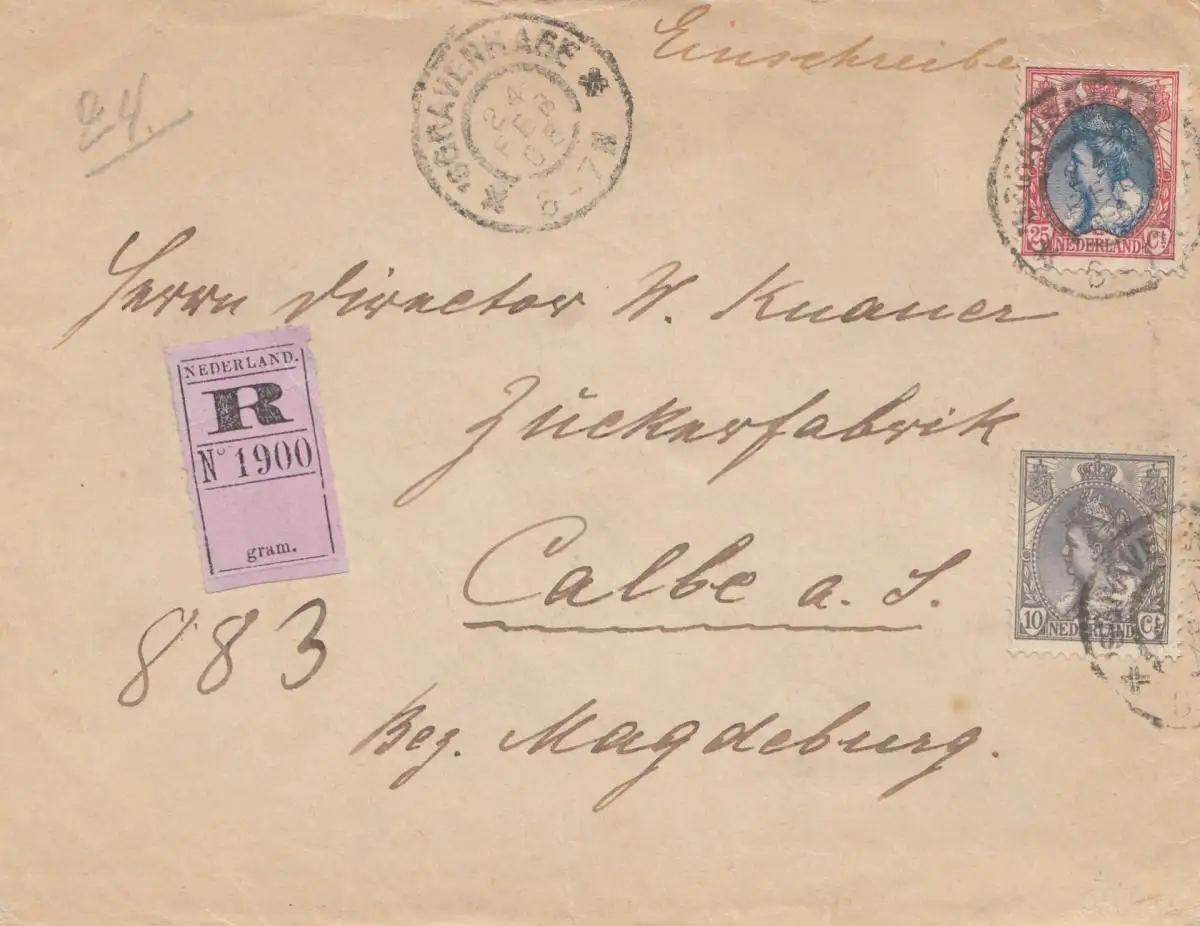 Einschreiben
24.
'SGRAVENHAGE
24 FEB 08
6-7N
25 NEDERLAND Ct
Herrn Director W. Knauer
NEDERLAND.
R
N° 1900
gram.
Zuckerfabrik
Calbe a. S.
10 NEDERLAND Ct
883
Bez. Magdeburg.